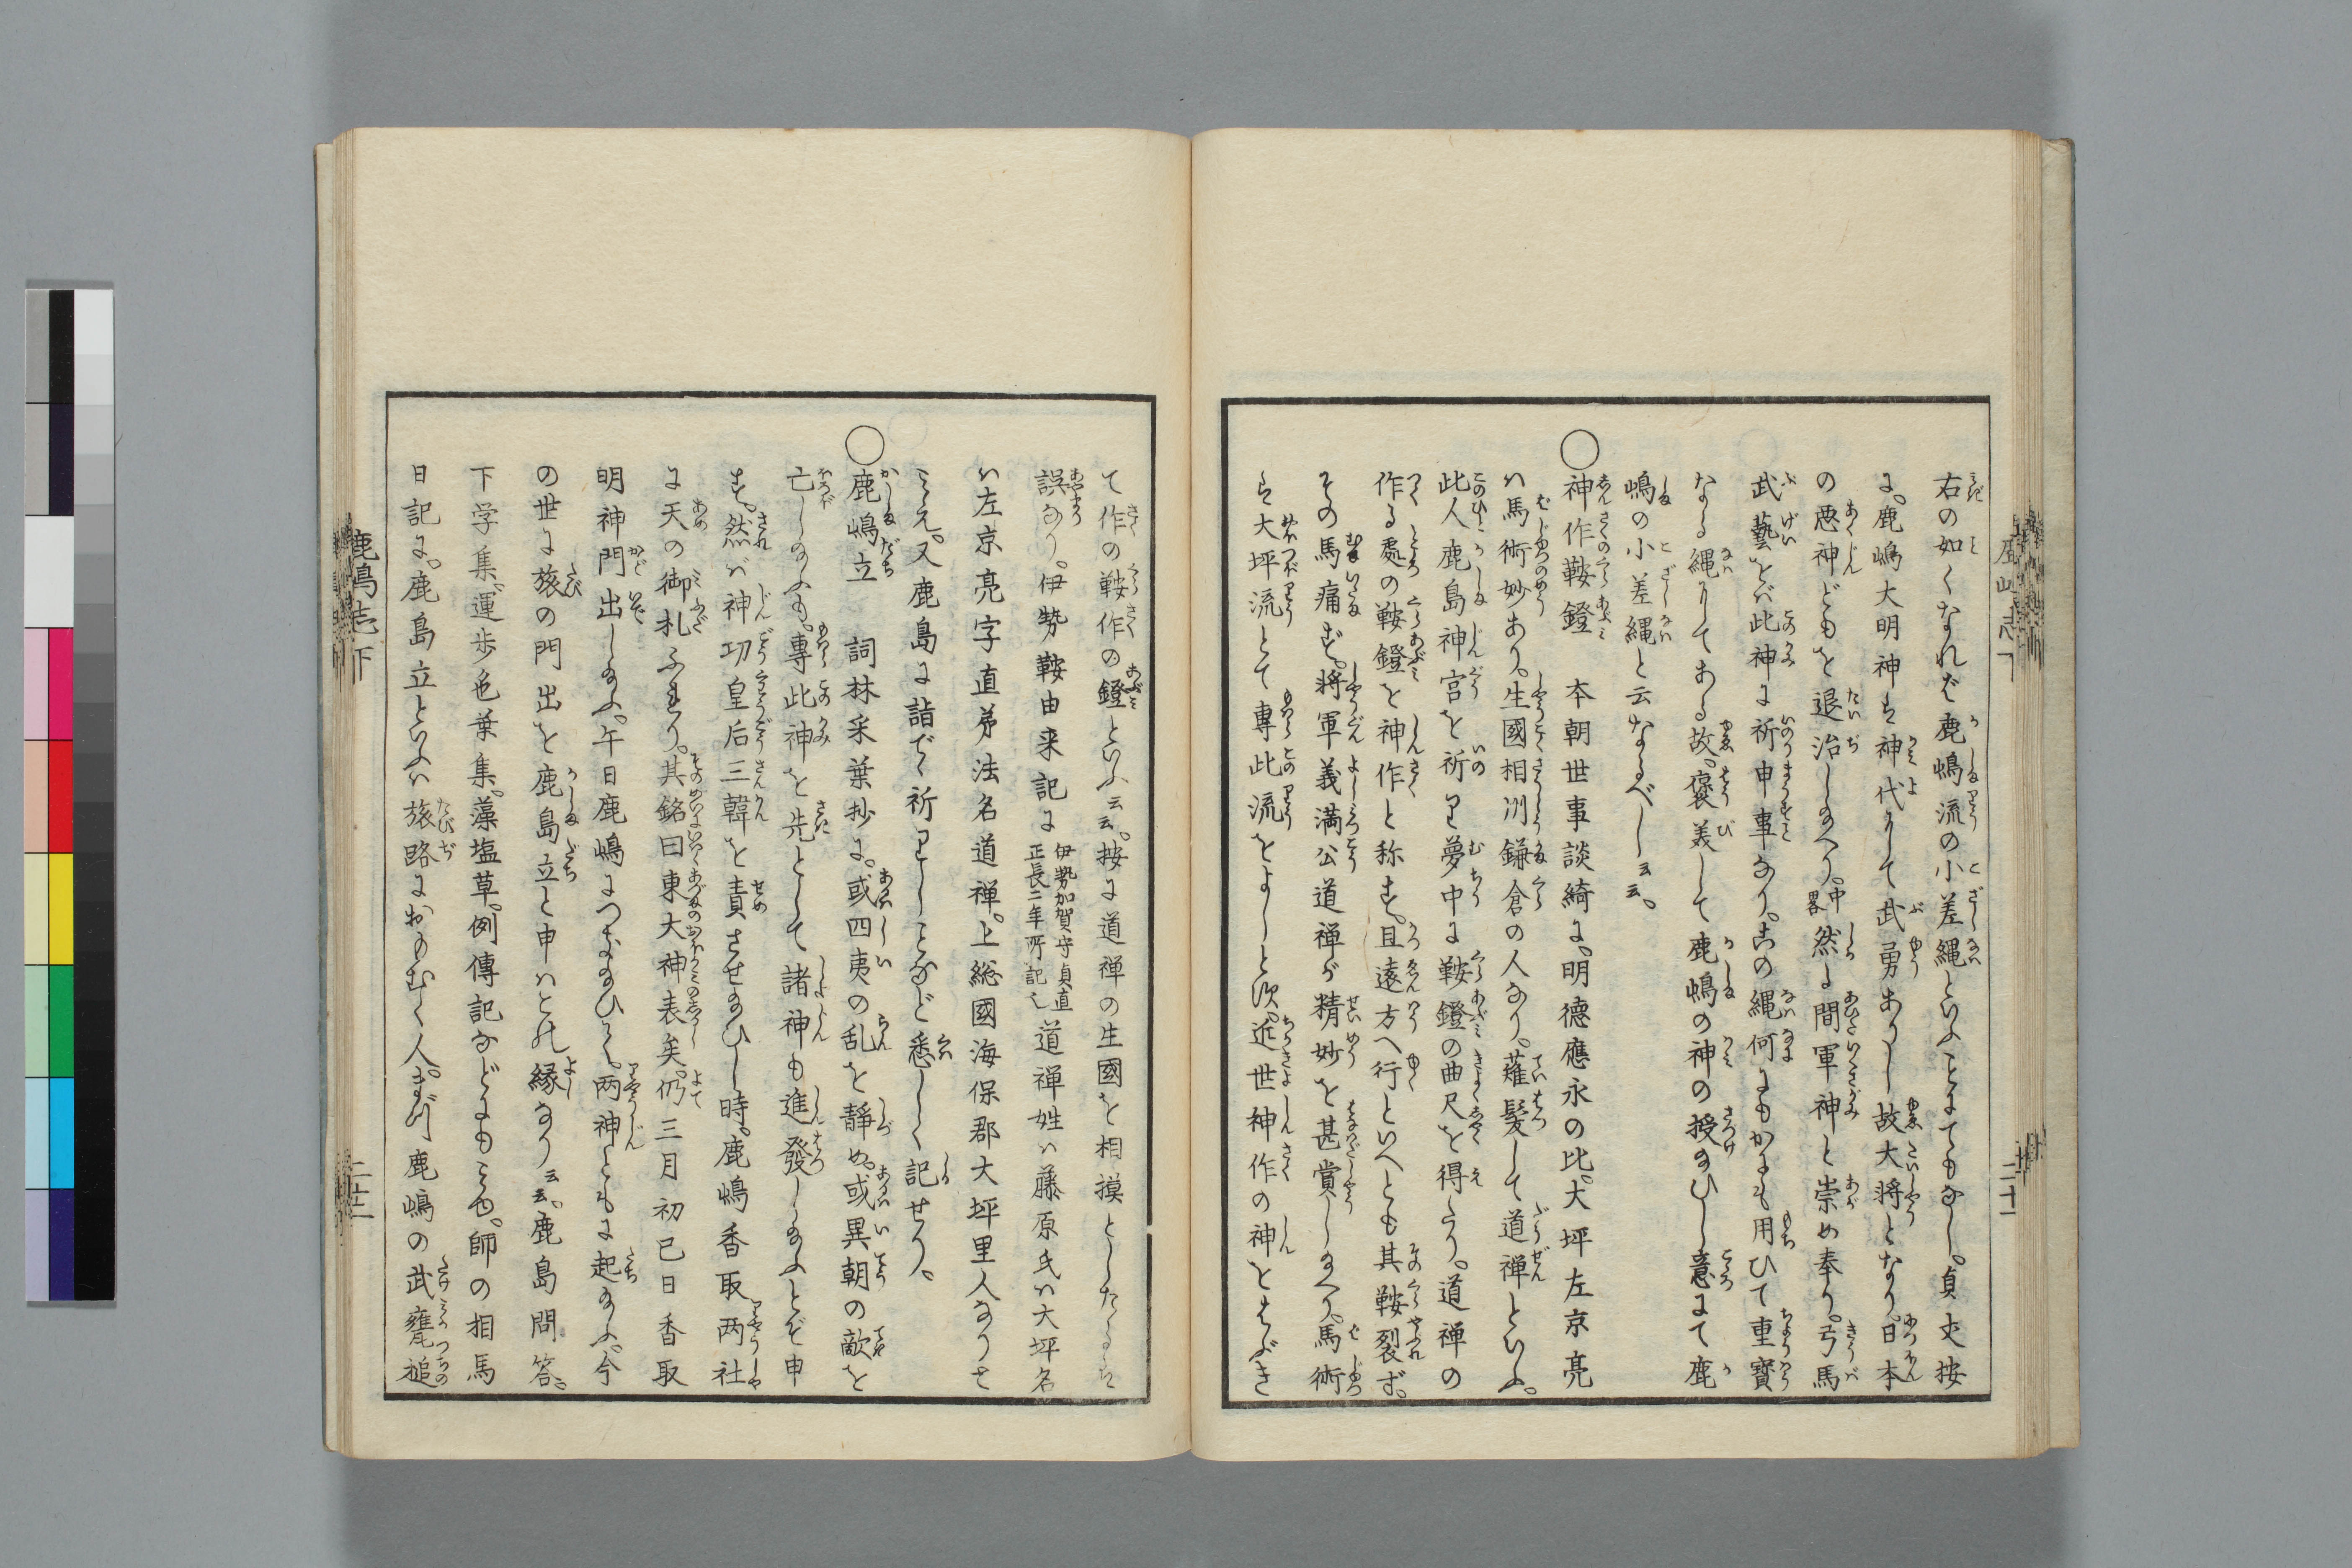 右の如くなれば鹿嶋流の小差縄といふことにてもなし。貞丈按
に。鹿嶋大明神は神代にして武勇ありし故大将となり。日本
の悪神どもを退治し給へり。中畧然る間軍神と崇め奉り。弓馬
武藝をば此神に祈申事なり。この縄何にもかにも用ひて重寳
なる縄にてある故。褒美して鹿嶋の神の授給ひし意にて鹿
嶋の小差縄と云なるべし云云。
○神作鞍鐙 本朝世事談綺に。明德應永の比。大坪左京亮
は馬術妙あり。生國相州鎌倉の人なり。薙髪して道禅といふ。
此人鹿島神宮を祈り夢中に鞍鐙の曲尺を得たり。道禅の
作る處の鞍鐙を神作と称す。且遠方へ行といへとも其鞍裂ず。
その馬痛ず。将軍義満公道禅が精妙を甚賞し給へり。馬術
は大坪流とて專此流をよしと須。近世神作の神をはぶき
て作の鞍作の鐙といふ云云。按に道禅の生國を相摸としたるは
誤なり。伊勢鞍由来記に伊勢加賀守貞直正長二年所記也道禅姓は藤原氏は大坪名
は左京亮字直弟法名道禅。上総國海保郡大坪里人なりと
みえ。又鹿島に詣で祈りしことなど悉しく記せり。
○鹿嶋立 詞林采葉抄に。或四夷の乱を静め。或異朝の敵を
亡し給ふも。專此神を先として諸神も進發し給ふとぞ申
す。然ば神功皇后三韓を責させ給ひし時。鹿嶋香取両社
に天の御札ふれり。其銘曰東大神表矣。仍三月初巳日香取
明神門出し給ふ。午日鹿嶋につき給ひて。両神ともに起給ふ。今
の世に旅の門出を鹿島立と申はこれ縁なり云云。鹿島問答。
下学集。運歩色葉集。藻塩草。例傳記などにもみゆ。師の相馬
日記に。鹿島立といふは旅路におもむく人。まづ鹿嶋の武甕槌
鹿嶋志下